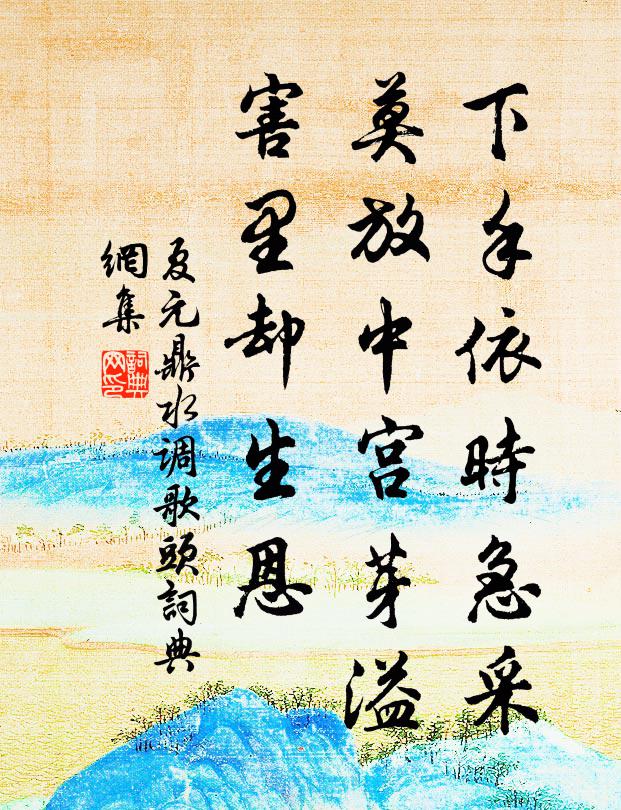 下手依時急采
莫放中宮芽溢
害里却生恩
夏元鼎水调歌頭詞典
網集
詞典
网印